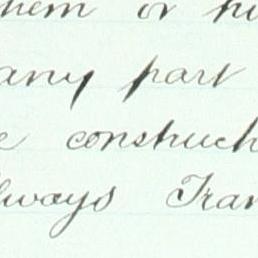 them or hi
any part
e construct
lways Tran